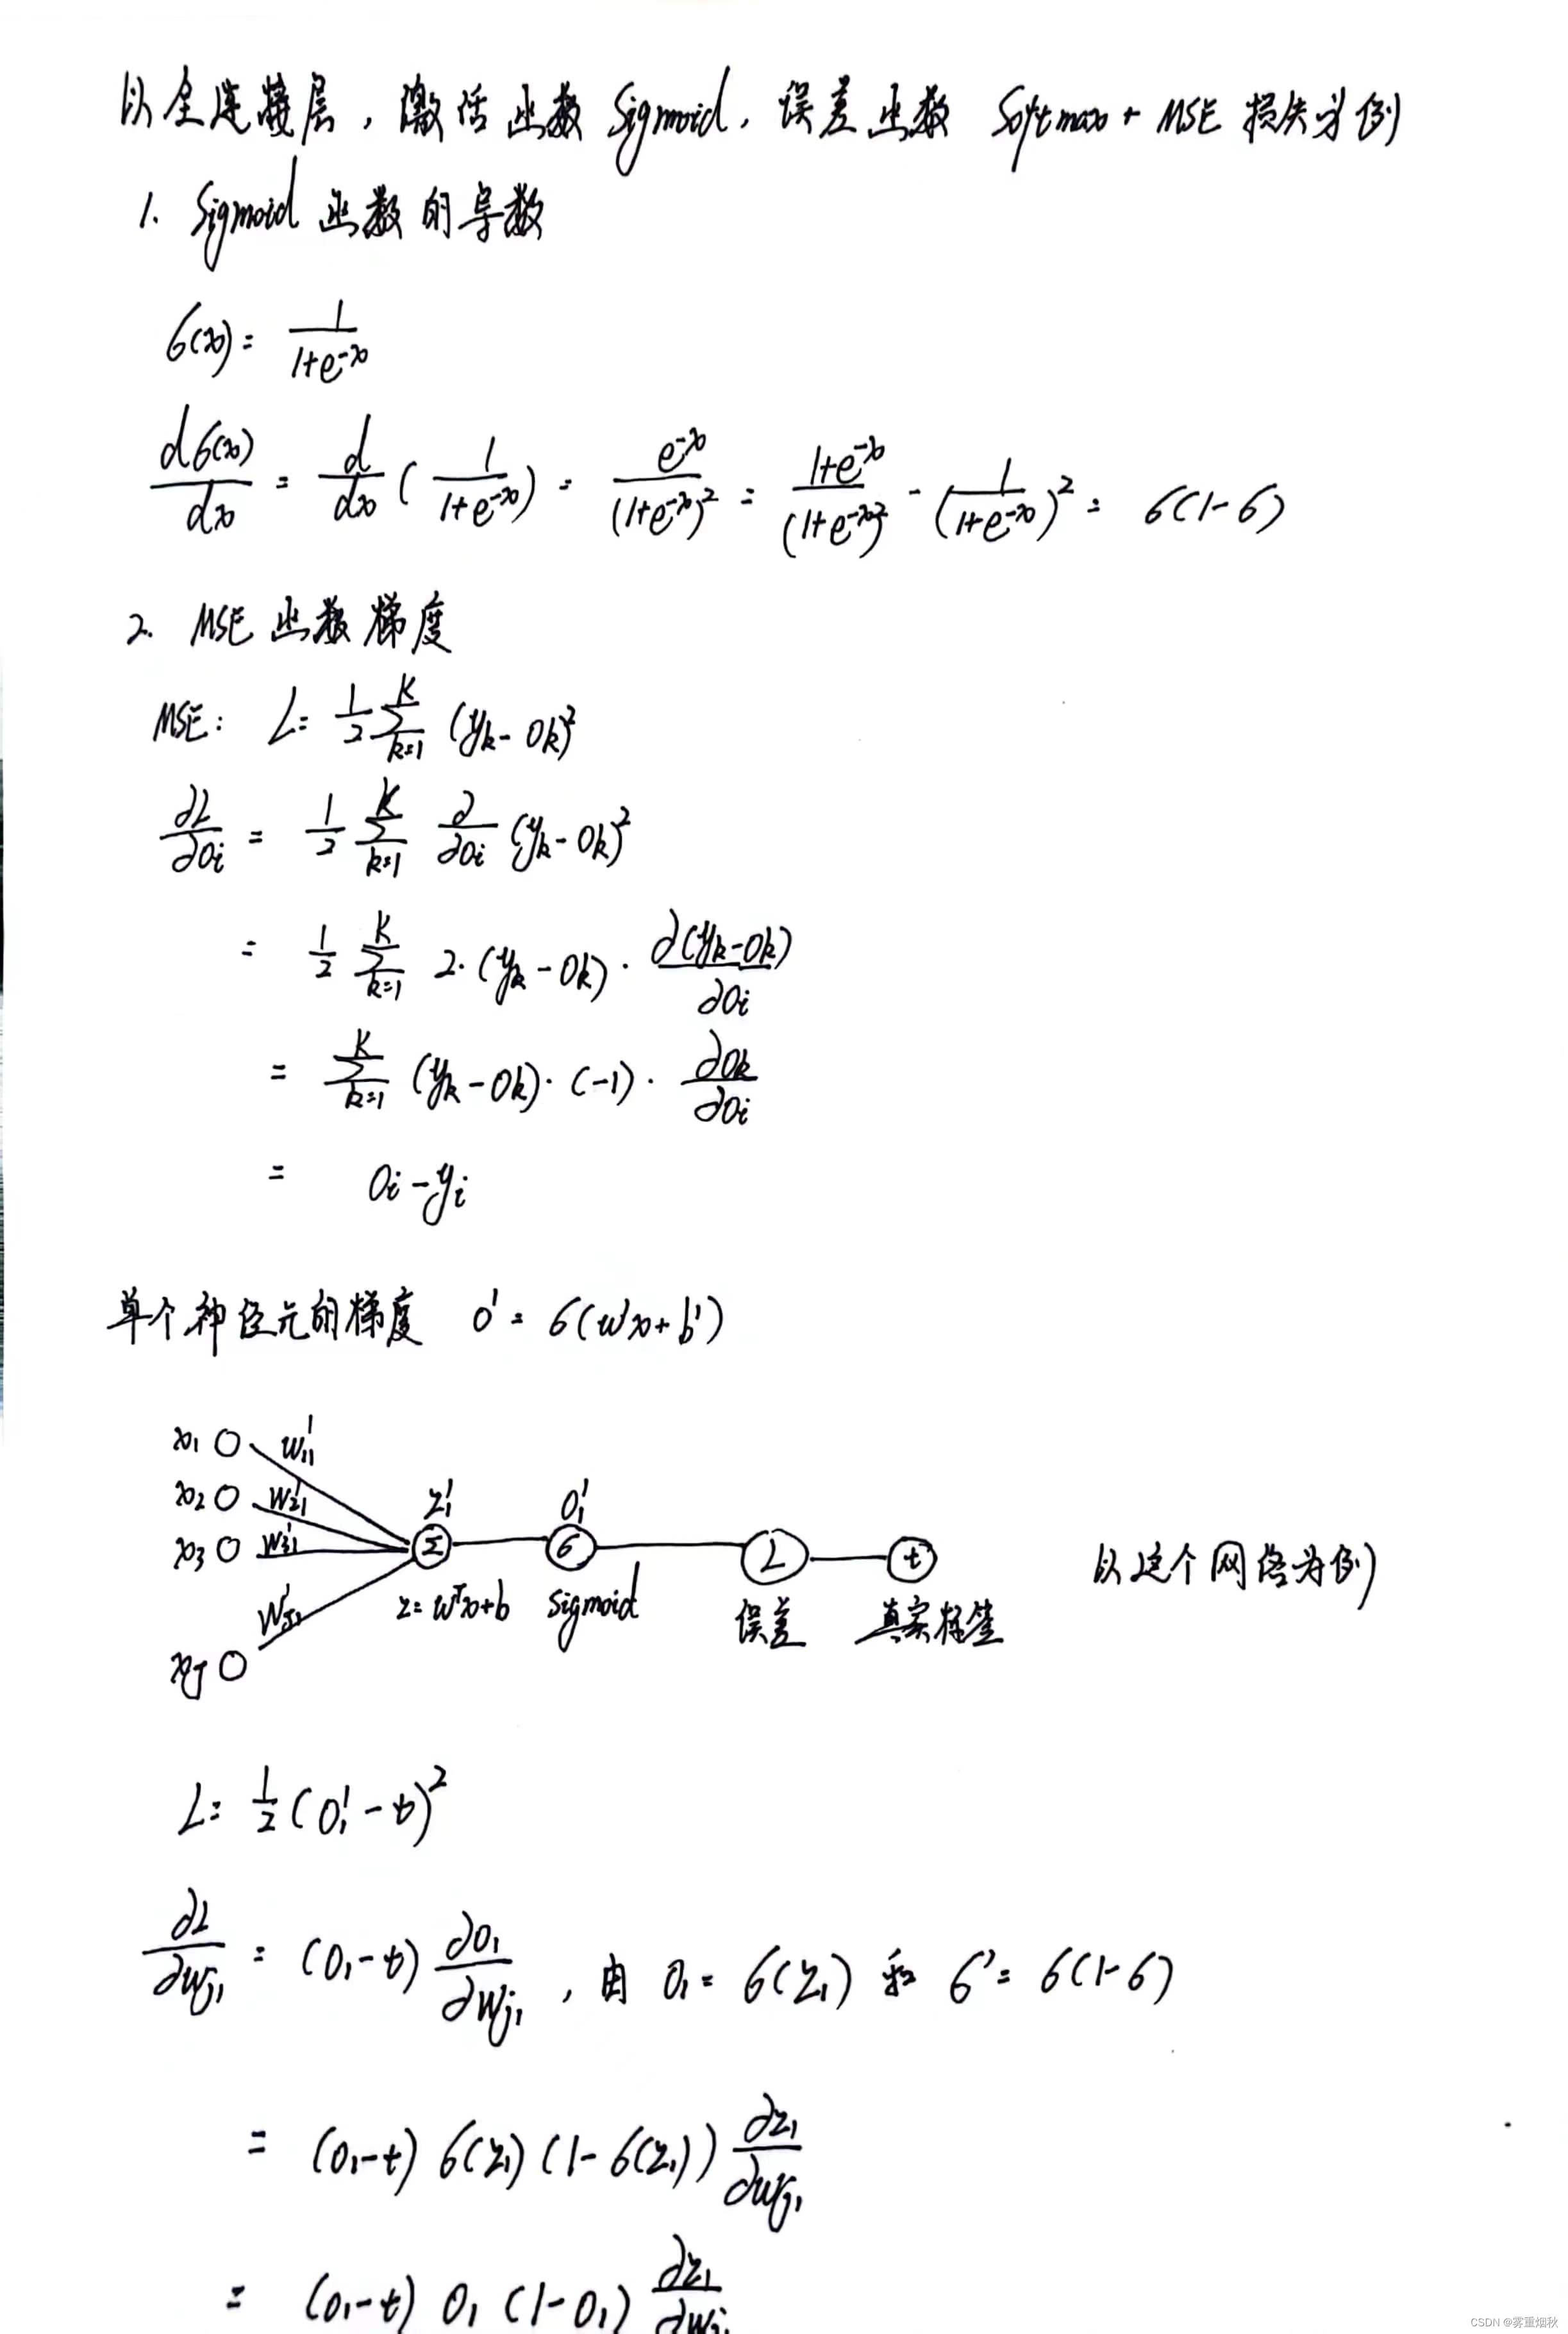 以全连接层，激活函数 Sigmoid，误差函数 Softmax + MSE 损失为例
1. Sigmoid 函数的导数
σ(x) = 1/(1+e^{-x})
dσ(x)/dx = d/dx (1/(1+e^{-x})) = e^{-x}/(1+e^{-x})^2 = (1+e^{-x})/(1+e^{-x})^2 - (1/(1+e^{-x}))^2 = σ(1-σ)
2. MSE 函数梯度
MSE: L = 1/2 Σ_{k=1}^{K} (y_k - o_k)^2
∂L/∂o_i = 1/2 Σ_{k=1}^{K} ∂/∂o_i (y_k - o_k)^2
= 1/2 Σ_{k=1}^{K} 2·(y_k - o_k)· ∂(y_k - o_k)/∂o_i
= Σ_{k=1}^{K} (y_k - o_k)·(-1)· ∂o_k/∂o_i
= o_i - y_i
单个神经元的梯度 o^1 = σ(w^1x + b^1)
x_1 w_{11}^1
x_2 w_{21}^1 z_1^1 o_1^1
x_3 w_{31}^1 Σ σ L t 以这个网络为例
w_{J1}^1 z = w^Tx+b sigmoid 误差 真实标签
x_J
L = 1/2 (o_1^1 - t)^2
∂L/∂w_{j1} = (o_1 - t) ∂o_1/∂w_{j1}，由 o_1 = σ(z_1) 和 σ' = σ(1-σ)
= (o_1 - t) σ(z_1)(1 - σ(z_1)) ∂z_1/∂w_{j1}
= (o_1 - t) o_1 (1 - o_1) ∂z_1/∂w_{j1}
CSDN @雾重烟秋